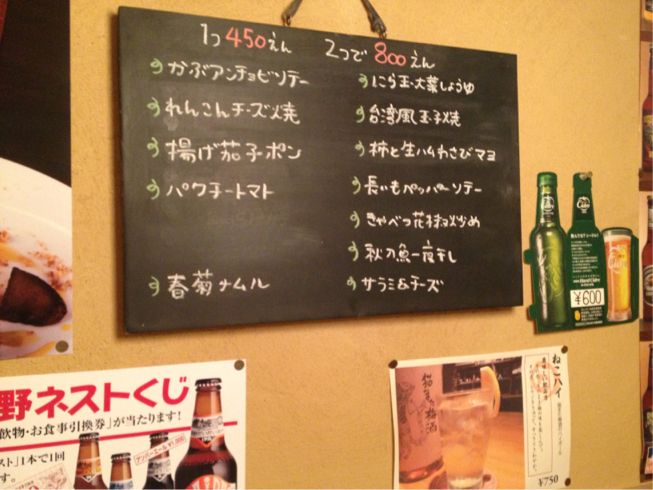 1つ450えん 2つで800えん
かぶアンチョビソテー
れんこんチーズ焼
揚げ茄子ポン
パクチートマト
春菊ナムル
にら玉・大葉しょうゆ
台湾風玉子焼
柿と生ハムわさびマヨ
長いもペッパーソテー
きゃべつ花椒炒め
秋刀魚一夜干し
サラミ&チーズ
¥600
野ネストくじ
飲物・お食事引換券」が当たります!
スト」1本で1回
ねこハイ
梅酒
¥750